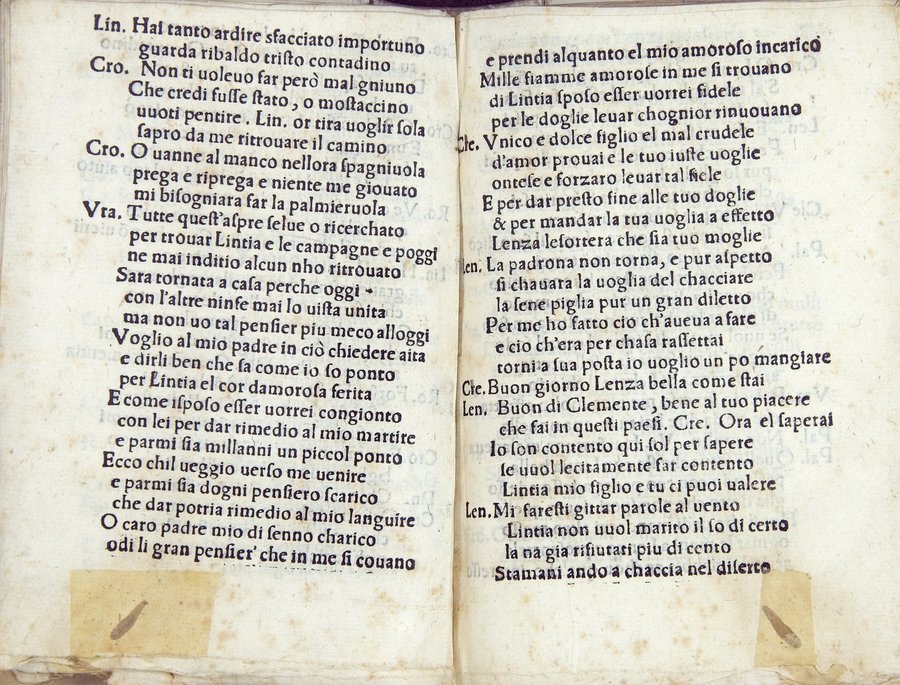 Lin. Hai tanto ardire sfacciato importuno
guarda ribaldo tristo contadino
Cro. Non ti uoleuo far però mal gniuno
Che credi fusse stato, o mostaccino
uuoti pentire. Lin. or tira uoglir sola
sapro da me ritrouare il camino
Cro. O uanne al manco nellora spagniuola
prega e riprega e niente me giouato
mi bisogniara far la palmieruola
Vra. Tutte quest'aspre selue o ricerchato
per trouar Lintia e le campagne e poggi
ne mai inditio alcun nho ritrouato
Sara tornata a casa perche oggi
con l'altre ninfe mai lo uista unita
ma non uo tal pensier piu meco alloggi
Voglio al mio padre in ciò chiedere aita
e dirli ben che sa come io so ponto
per Lintia el cor damorosa ferita
E come isposo esser uorrei congionto
con lei per dar rimedio al mio martire
e parmi sia millanni un piccol ponto
Ecco chil ueggio uerso me uenire
e parmi sia dogni pensiero scarico
che dar potria rimedio al mio languire
O caro padre mio di senno charico
odi li gran pensier' che in me si couano
e prendi alquanto el mio amoroso incarico
Mille fiamme amorose in me si trouano
di Lintia sposo esser uorrei fidele
per le doglie leuar chognior rinuouano
Cle. Vnico e dolce figlio el mal crudele
d'amor prouai e le tuo iuste uoglie
ontese e forzaro leuar tal fiele
E per dar presto fine alle tuo doglie
& per mandar la tua uoglia a effetto
Lenza lesortera che sia tuo moglie
Len. La padrona non torna, e pur aspetto
si chauara la uoglia del chacciare
la sene piglia pur un gran diletto
Per me ho fatto cio ch'aueua a fare
e cio ch'era per chasa rassettai
torni a sua posta io uoglio un po mangiare
Cre. Buon giorno Lenza bella come stai
Len. Buon di Clemente, bene al tuo piacere
che fai in questi paesi. Cre. Ora el saperai
Io son contento qui sol per sapere
se uuol lecitamente far contento
Lintia mio figlio e tu ci puoi ualere
Len. Mi faresti gittar parole al uento
Lintia non uuol marito il so di certo
la na gia rifiutati piu di cento
Stamani ando a chaccia nel diserto